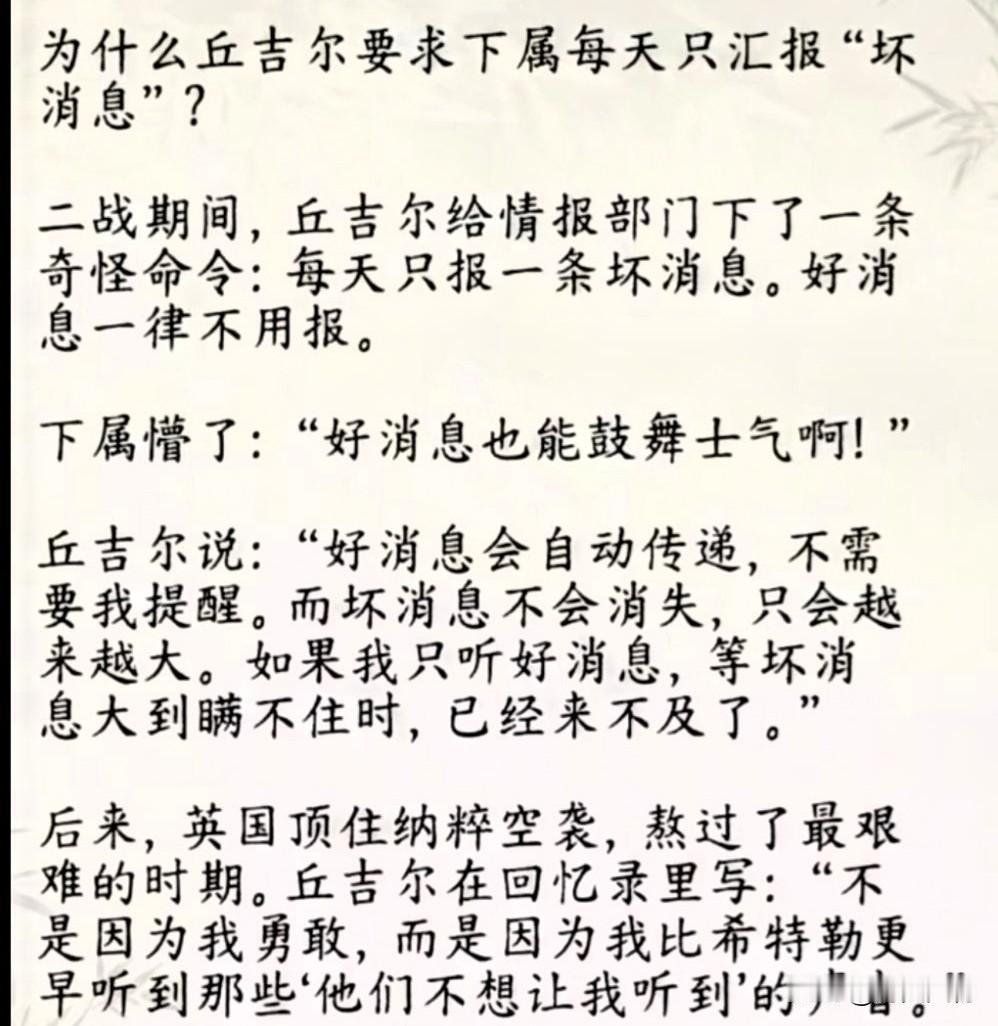 为什么丘吉尔要求下属每天只汇报“坏
消息”？
二战期间，丘吉尔给情报部门下了一条
奇怪命令：每天只报一条坏消息。好消
息一律不用报。
下属懵了：“好消息也能鼓舞士气啊！”
丘吉尔说：“好消息会自动传递，不需
要我提醒。而坏消息不会消失，只会越
来越大。如果我只听好消息，等坏消
息大到瞒不住时，已经来不及了。”
后来，英国顶住纳粹空袭，熬过了最艰
难的时期。丘吉尔在回忆录里写：“不
是因为我勇敢，而是因为我比希特勒更
早听到那些‘他们不想让我听到’的